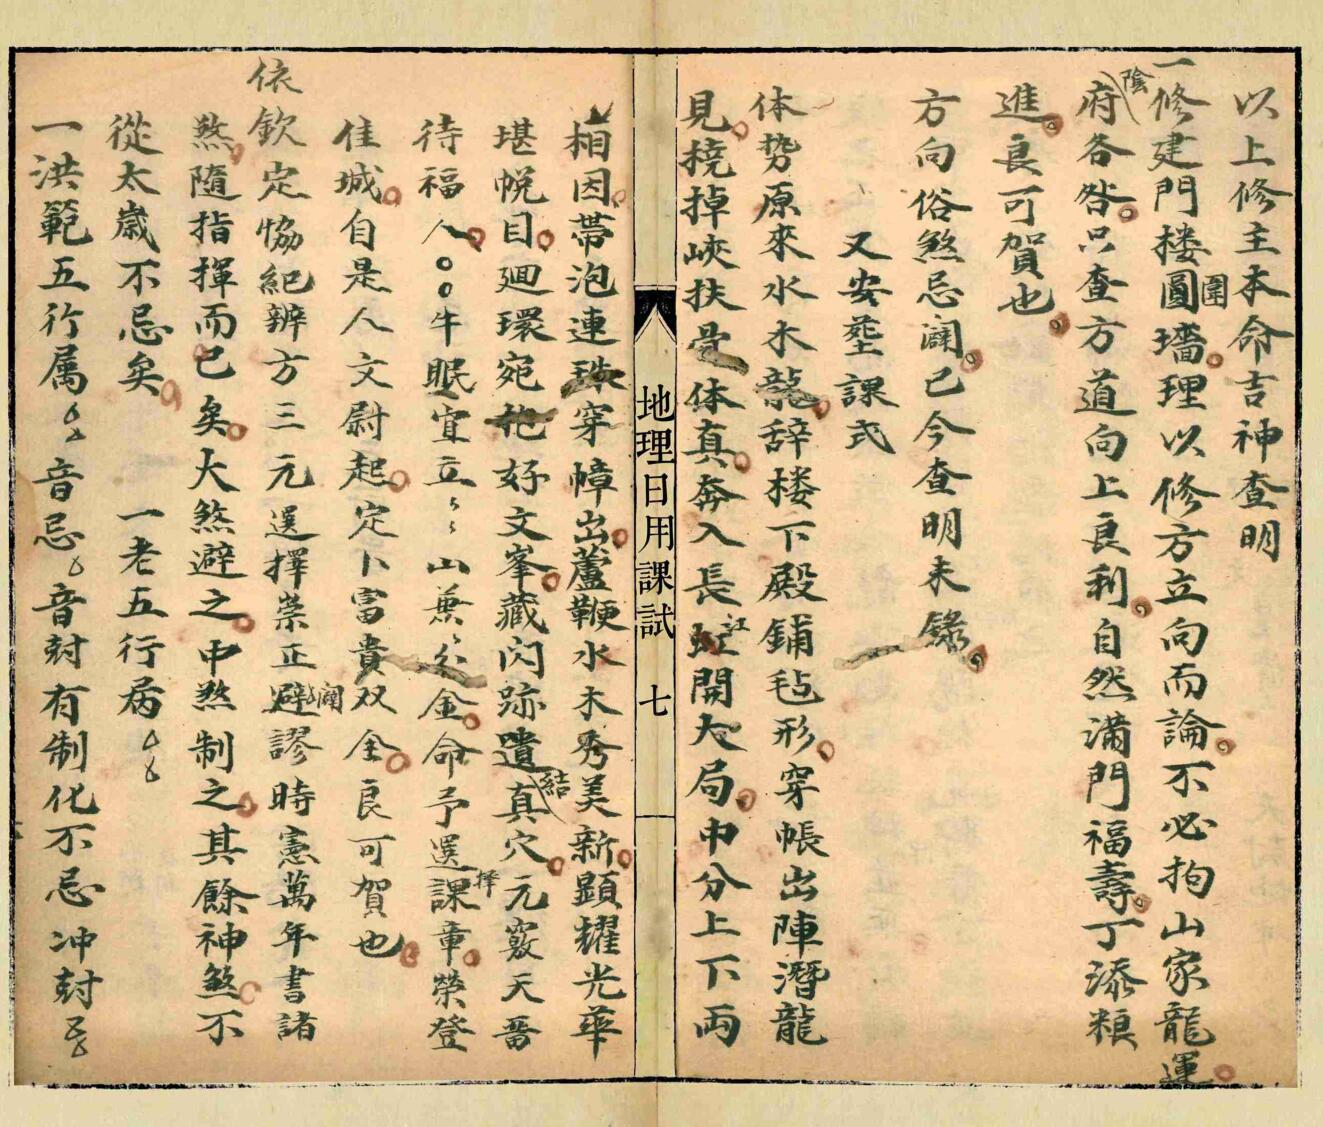 以上修主本命吉神查明
一修建門楼圓圍墻理以修方立向而論不必拘山家龍運
陰府各咎只查方道向上良利自然满門福壽丁添粮
進良可賀也
方向俗煞忌闢已今查明未錄
又安塟課式
体势原來水木龍辞楼下殿鋪毡形穿帳出陣潛龍
見撓掉峽扶骨体真奔入長江虹開大局中分上下両
地理日用課試 七
相因帯泡連珠穿幛出蘆鞭水木秀美新顕耀光華
堪悦目廻環宛抱好文峯藏閃跡遺真結穴元竅天畱
待福人○○牛眠宜立山兼分金命予選擇課章榮登
佳城自是人文蔚起定卜富貴双全良可賀也
依欽定恊紀辨方三元選擇崇正避闢謬時憲萬年書諸
煞隨指揮而已矣大煞避之中煞制之其餘神煞不
從太歳不忌矣 一老五行病
一洪範五行属 音忌 音尅有制化不忌冲尅